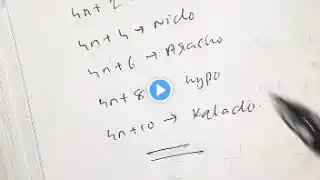 4n+2
4n+4 → Nido
4n+6 → Aracho
4n+8 → Hypo
4n+10 → Kalado